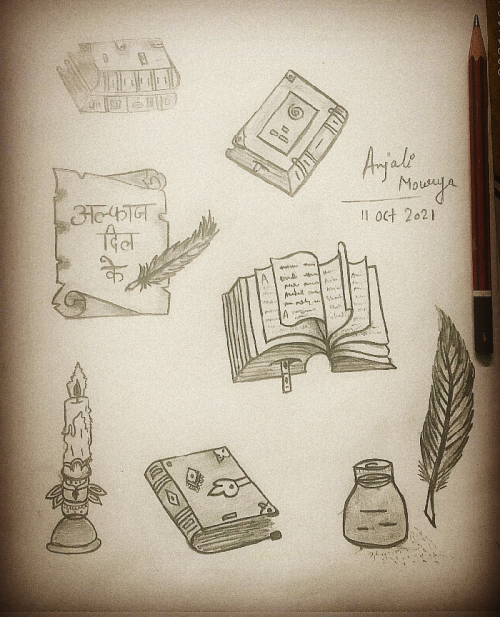 Anjali
Mourya
11 Oct 2021
अल्फाज
दिल
के